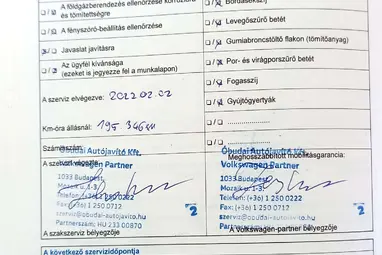 A földgázberendezés ellenőrzése
és tömítettségre
A fényszóró-beállítás ellenőrzése
Javaslat javításra
Az ügyfél kívánsága
(ezeket is jegyezze fel a munkalapon)
A szerviz elvégezve: 2022 02. 02
Km-óra állásnál: 195 346 km
Számlaszám:
Óbudai Autójavító Kft.
Partner
1033 Budapest,
Mozaik u. 1-3.
Telefon: (+36) 1 250 0222
Fax: (+36) 1 250 0712
szerviz@obudai-autojavito.hu
Partnerszám: HU 233 00870
2
A szakszerviz bélyegzője
A következő szervizidőpontja
Levegőszűrő betét
Gumiabroncstöltő flakon (tömítőanyag)
Por- és virágporszűrő betét
Fogasszíj
Gyújtógyertyák
Meghosszabbított mobilitásgarancia:
Óbudai Autójavító Kft.
Volkswagen Partner
1033 Budapest,
Mozaik u. 1-3.
Telefon: (+36) 1 250 0222
Fax: (+36) 1 250 0712
szerviz@obudai-autojavito.hu
2
A Volkswagen-partner bélyegzője